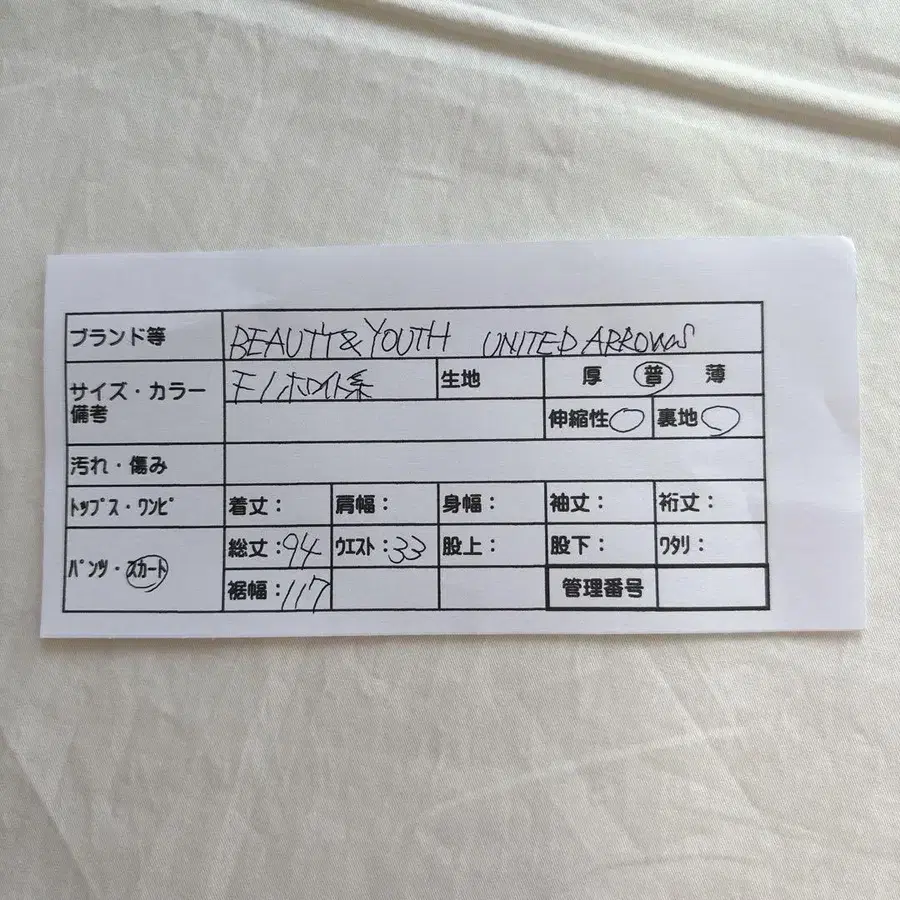 ブランド等 BEAUTY&YOUTH UNITED ARROWS
サイズ・カラー 備考 F/ホワイト系 生地 厚 普 薄
伸縮性○ 裏地○
汚れ・傷み
トップス・ワンピ 着丈: 肩幅: 身幅: 袖丈: 裄丈:
パンツ・スカート 総丈:94 ウエスト:33 股上: 股下: ワタリ:
裾幅:117 管理番号